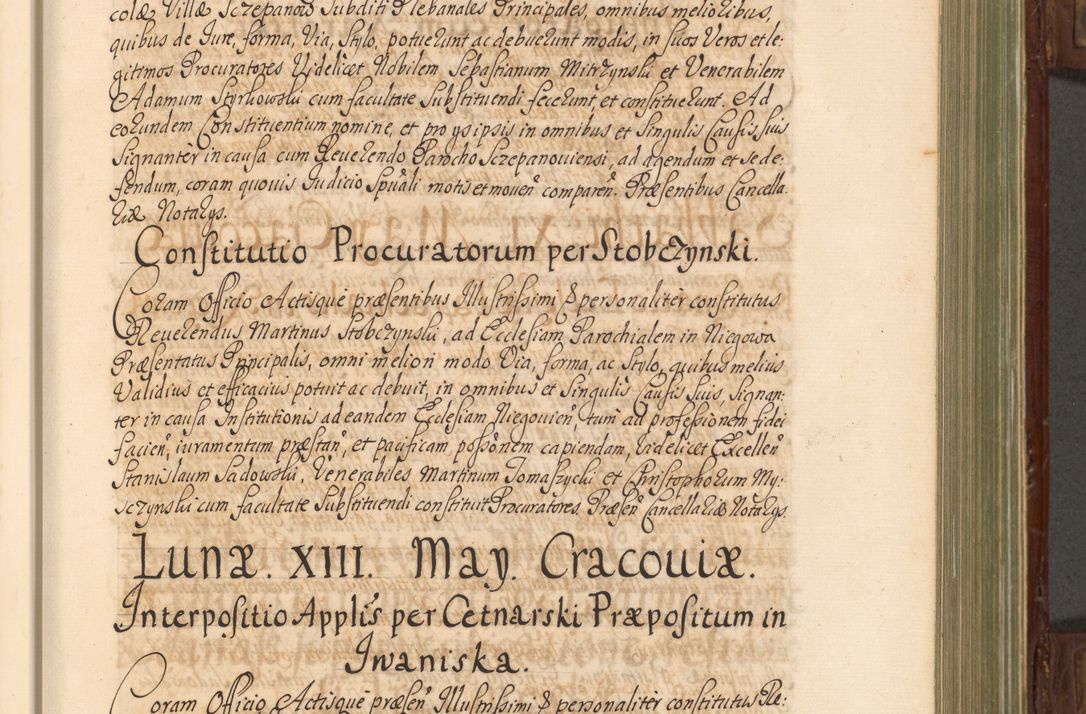 colæ Villæ Sczepanow Subditi Plebanales Principales, omnibus melioribus,
quibus de Iure, forma, Via, Stylo, potuerunt ac debuerunt modis, in suos Veros et le:
gitimos Procuratores Videlicet Nobilem Sebastianum Mitrzynski et Venerabilem
Adamum Styrkowski cum facultate Substituendi fecerunt, et constituerunt. Ad
eorundem Constituentium nomine, et pro ys ipsis in omnibus et Singulis Causis Suis
Signantèr in causa cum Reverendo Parocho Sczepanoviensi, ad agendum et se de:
fendum, coram quovis Iudicio Spūali motis et moven̄ comparen̄. Præsentibus Cancella:
riæ Notarys.
Constitutio Procuratorum per Stobczynski.
Coram Officio Actisque præsentibus Illustrissimi & personalitèr constitutus
Reverendus Martinus Stobczynski, ad Ecclesiam Parochialem in Niegowa
Præsentatus Principalis, omni meliori modo Via, forma, ac Stylo, quibus melius
Validius et efficacius potuit ac debuit, in omnibus et Singulis Causis Suis, Signan:
ter in causa Institutionis ad eandem Ecclesiam Niegovien̄, tum ad professionem fidei
facien̄, iuramentum præstan̄, et pacificam possōnem capiendam, Videlicet Excellen̄
Stanislaum Sadowski, Venerabiles Martinum Tomaszycki et Christophorum My:
sczynski cum facultate Substituendi constituit Procuratores. Præsen̄ Cancellariæ Notarys.
Lunæ. XIII. May. Cracouiæ.
Interpositio Applīs per Cetnarski Præpositum in
Iwaniska.
Coram Officio Actisque præsen̄ Illustrissimi & personaliter constitutus Re: